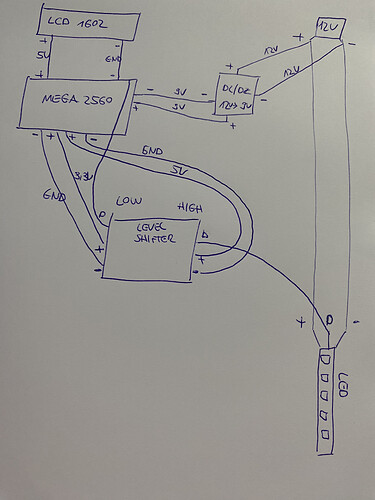 LCD 1602
12V
+ -
+ -
5V
GND
12V
+ -
+
MEGA 2560
- 9V -
DC/DC
12V→9V
12V
-
+ 9V
+
- + + -
GND
5V
3,3V
GND
LOW
HIGH
D
LEVEL
SHIFTER
D
+
+
-
-
+
D
-
LED